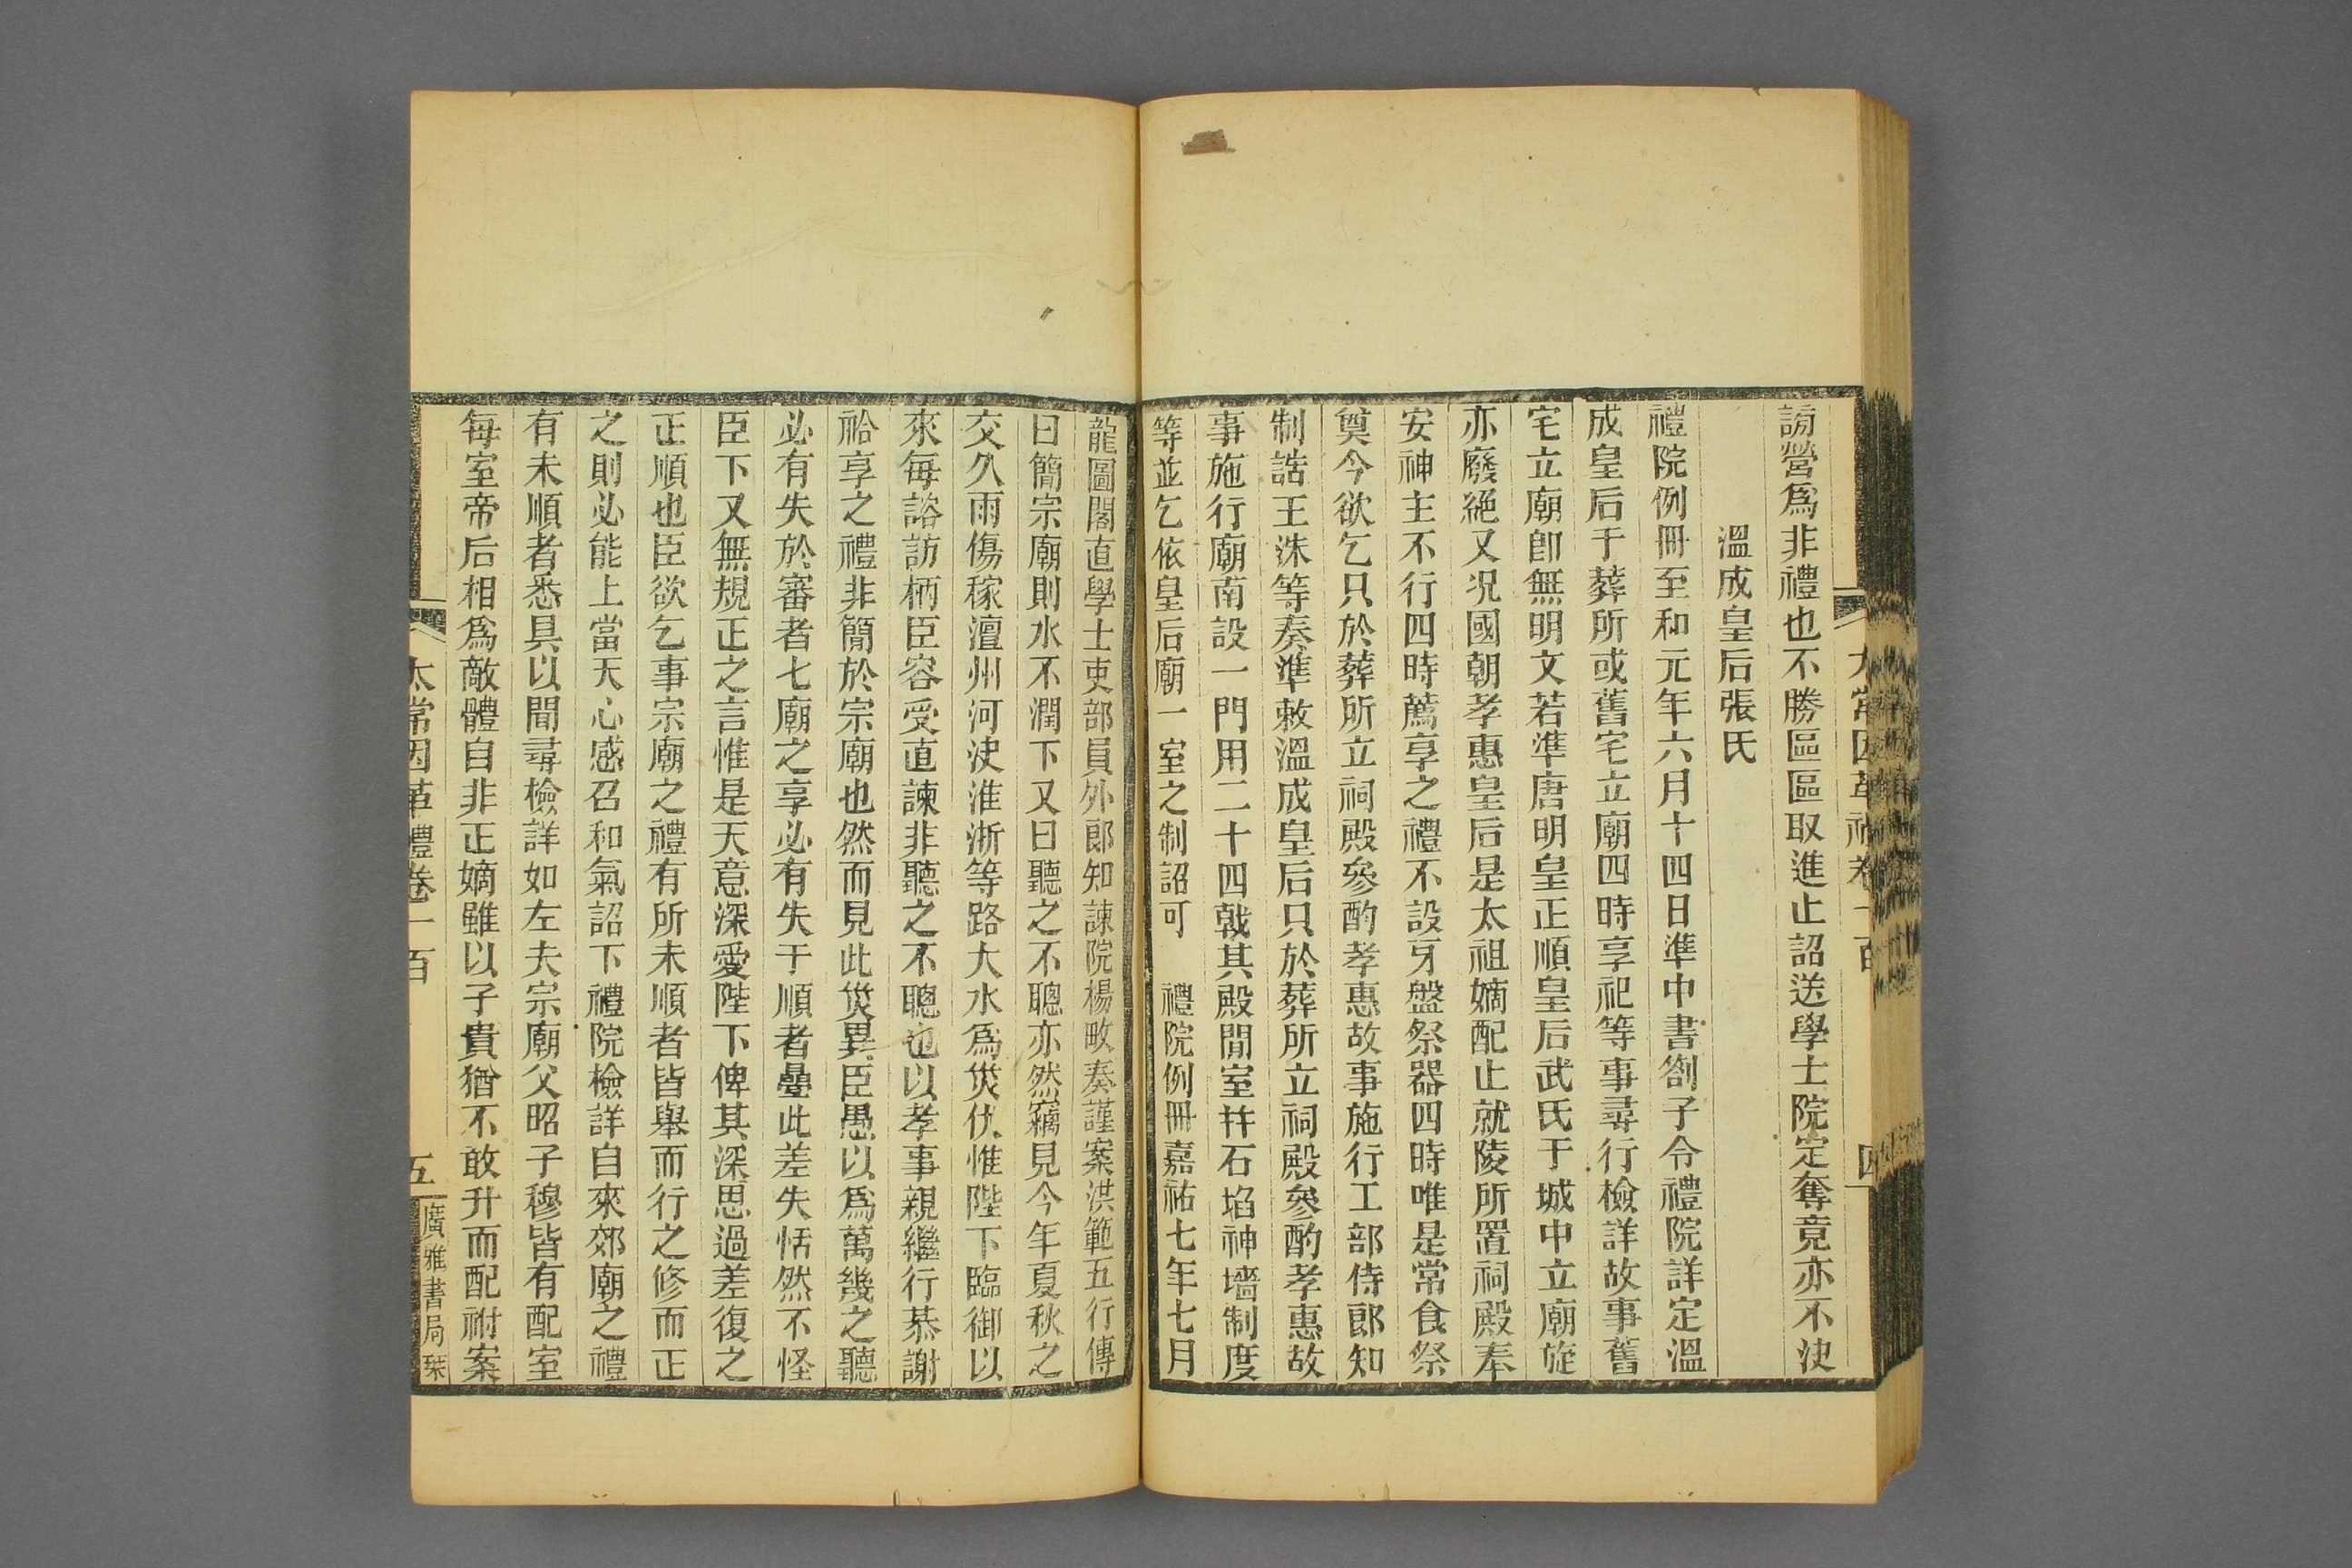 謗營爲非禮也不勝區區取進止詔送學士院定奪竟亦不決
溫成皇后張氏
禮院例冊至和元年六月十四日準中書劄子令禮院詳定溫
成皇后于葬所或舊宅立廟四時享祀等事尋行檢詳故事舊
宅立廟卽無明文若準唐明皇正順皇后武氏于城中立廟旋
亦廢絕又况國朝孝惠皇后是太祖嫡配止就陵所置祠殿奉
安神主不行四時薦享之禮不設牙盤祭器四時唯是常食祭
奠今欲乞只於葬所立祠殿參酌孝惠故事施行工部侍郎知
制誥王洙等奏準敕溫成皇后只於葬所立祠殿參酌孝惠故
事施行廟南設一門用二十四戟其殿閒室幷石埳神墻制度
等並乞依皇后廟一室之制詔可　禮院例冊嘉祐七年七月
龍圖閣直學士吏部員外郎知諫院楊畋奏謹案洪範五行傳
曰簡宗廟則水不潤下又曰聽之不聰亦然竊見今年夏秋之
交久雨傷稼澶州河決淮浙等路大水爲災伏惟陛下臨御以
來每諮訪柄臣容受直諫非聽之不聰也以孝事親繼行恭謝
祫享之禮非簡於宗廟也然而見此災異臣愚以爲萬幾之聽
必有失於審者七廟之享必有失于順者疊此差失恬然不怪
臣下又無規正之言惟是天意深愛陛下俾其深思過差復之
正順也臣欲乞事宗廟之禮有所未順者皆舉而行之修而正
之則必能上當天心感召和氣詔下禮院檢詳自來郊廟之禮
有未順者悉具以聞尋檢詳如左夫宗廟父昭子穆皆有配室
每室帝后相爲敵體自非正嫡雖以子貴猶不敢升而配祔案
太常因革禮卷一百
五
廣雅書局栞